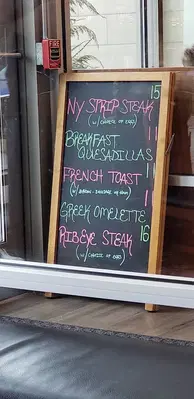 FIRE
15
NY STRIP STEAK
(w/ CHOICE OF EGG)
11
BREAKFAST
QUESADILLAS
11
FRENCH TOAST
11
GREEK OMELETTE
16
RIBEYE STEAK
(w/ CHOICE OF EGG)